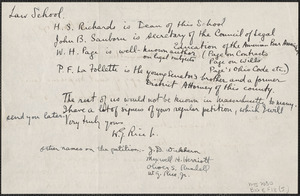 Law School.
H. S. Richards is Dean of this School
John B. Sanborn is secretary of the Council of Legal
Education of the American Bar
W. H. Page is well-known author (Page on Contracts
on legal subjects Page on Wills
Page's Ohio Code etc.)
P. F. La Follette is the young Senator's brother and a former
District Attorney of this county.
The rest of us would not be known in Massachusetts, to
I have a lot of signers of your regular petition, which I will
send you later.
Very truly yours,
W. G. Rice Jr.
other names on the petition - J. D.
Maxwell C. Herriott
Oliver S. Rundell
W. G. Rice, Jr.